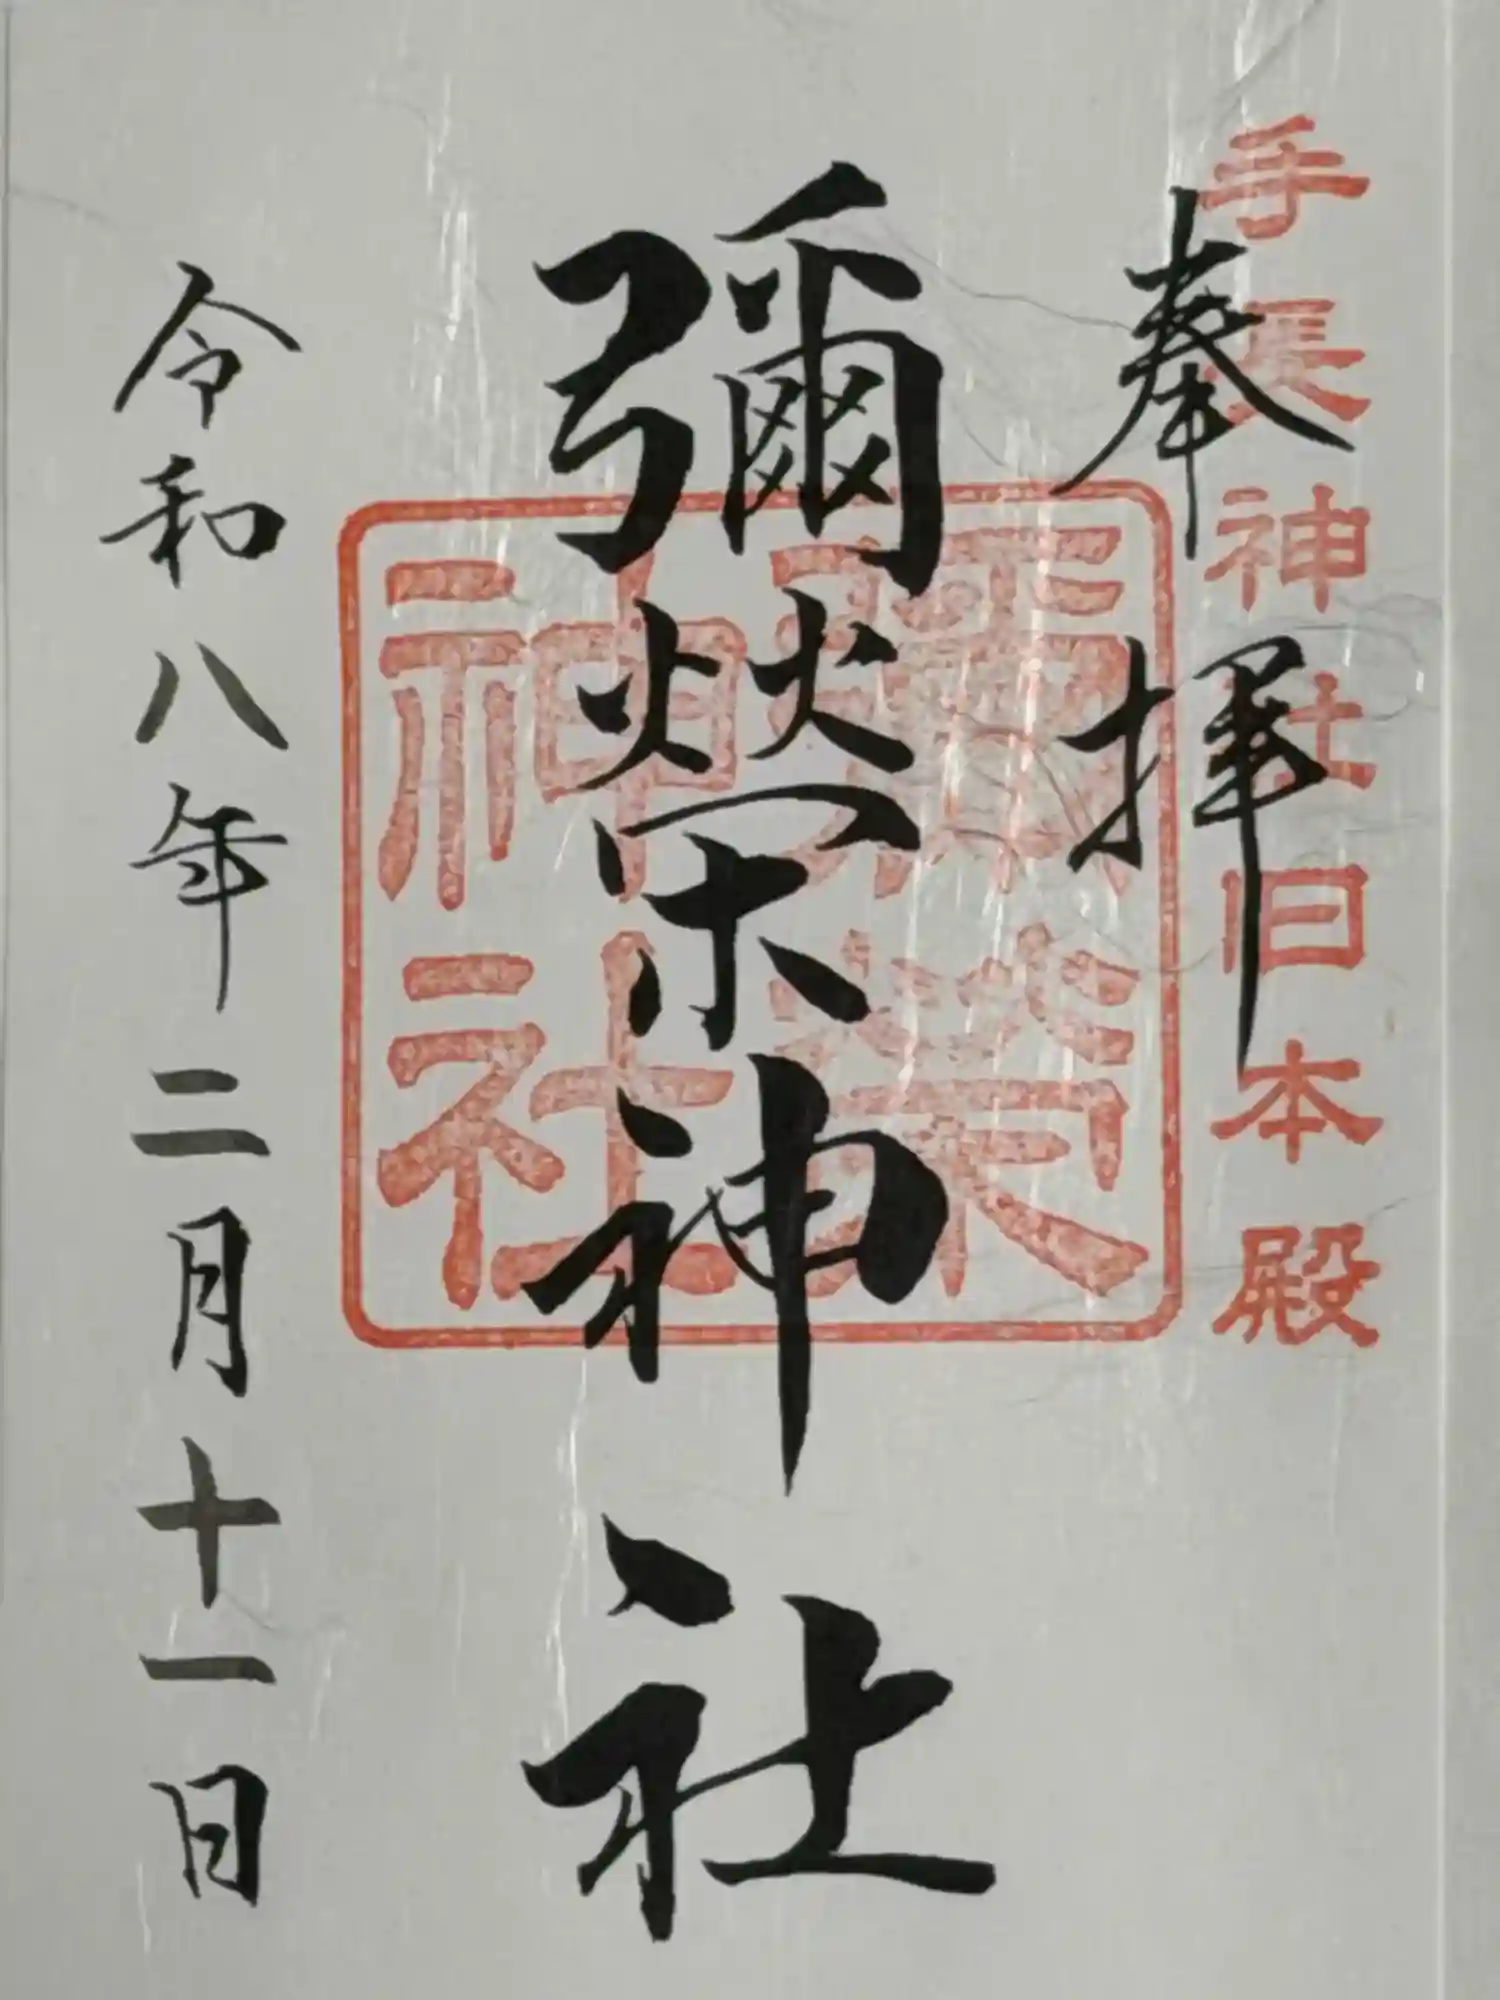 手長神社旧本殿
奉拝
彌榮神社
彌榮神社
令和八年二月十一日